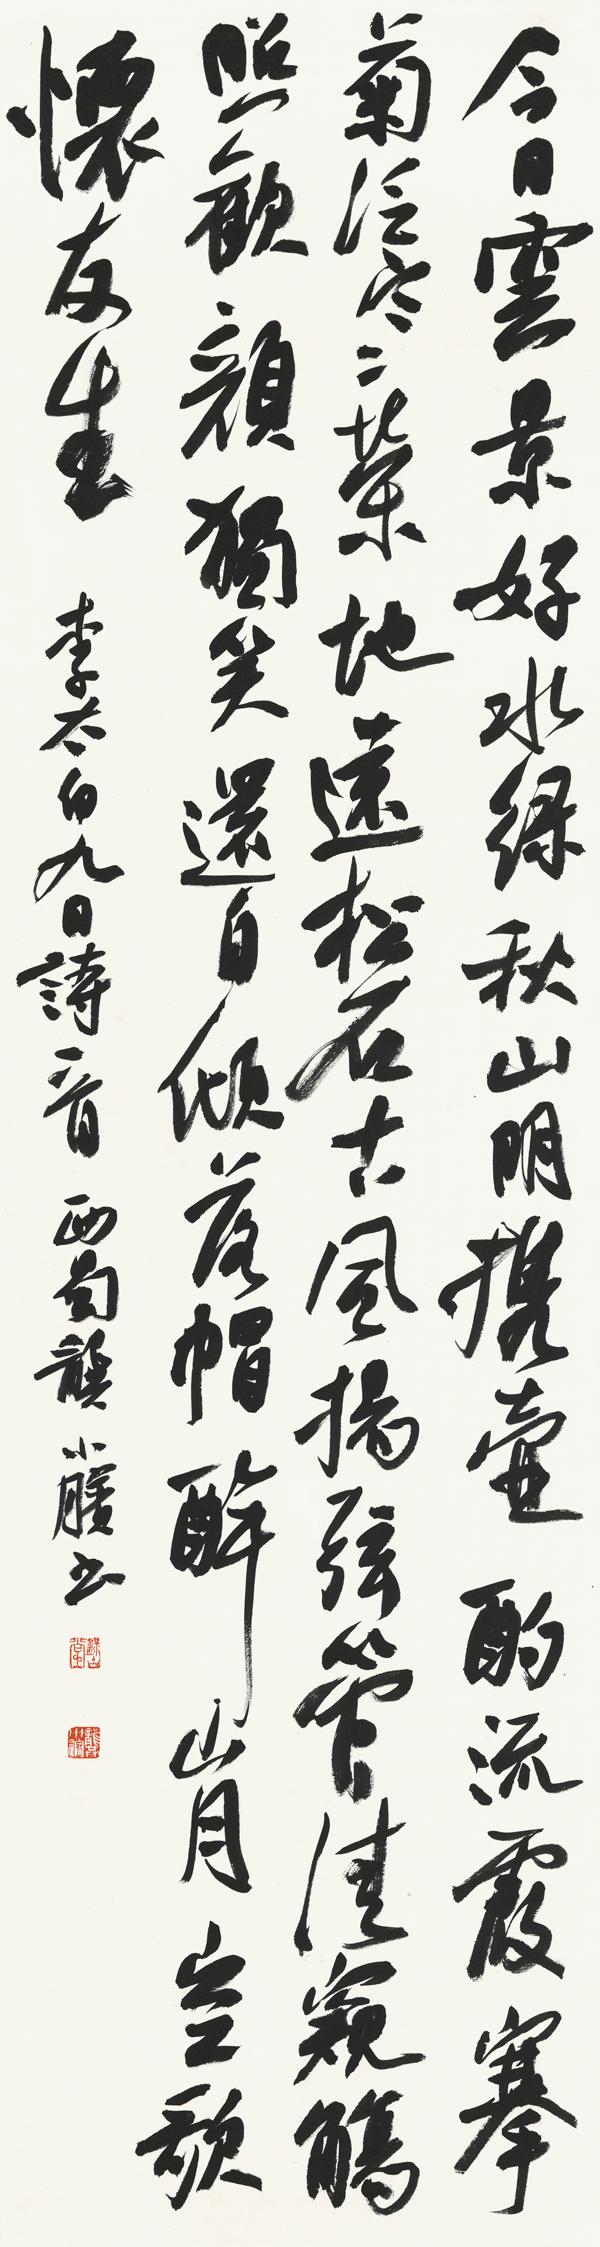 今日雲景好水緑秋山明携壺酌流霞搴
菊泛寒榮地遠松石古風揚弦管清窺觴
照歡顏獨笑還自傾落帽醉山月空歌
懷友生
李太白九日詩一首 西蜀龔小臏書